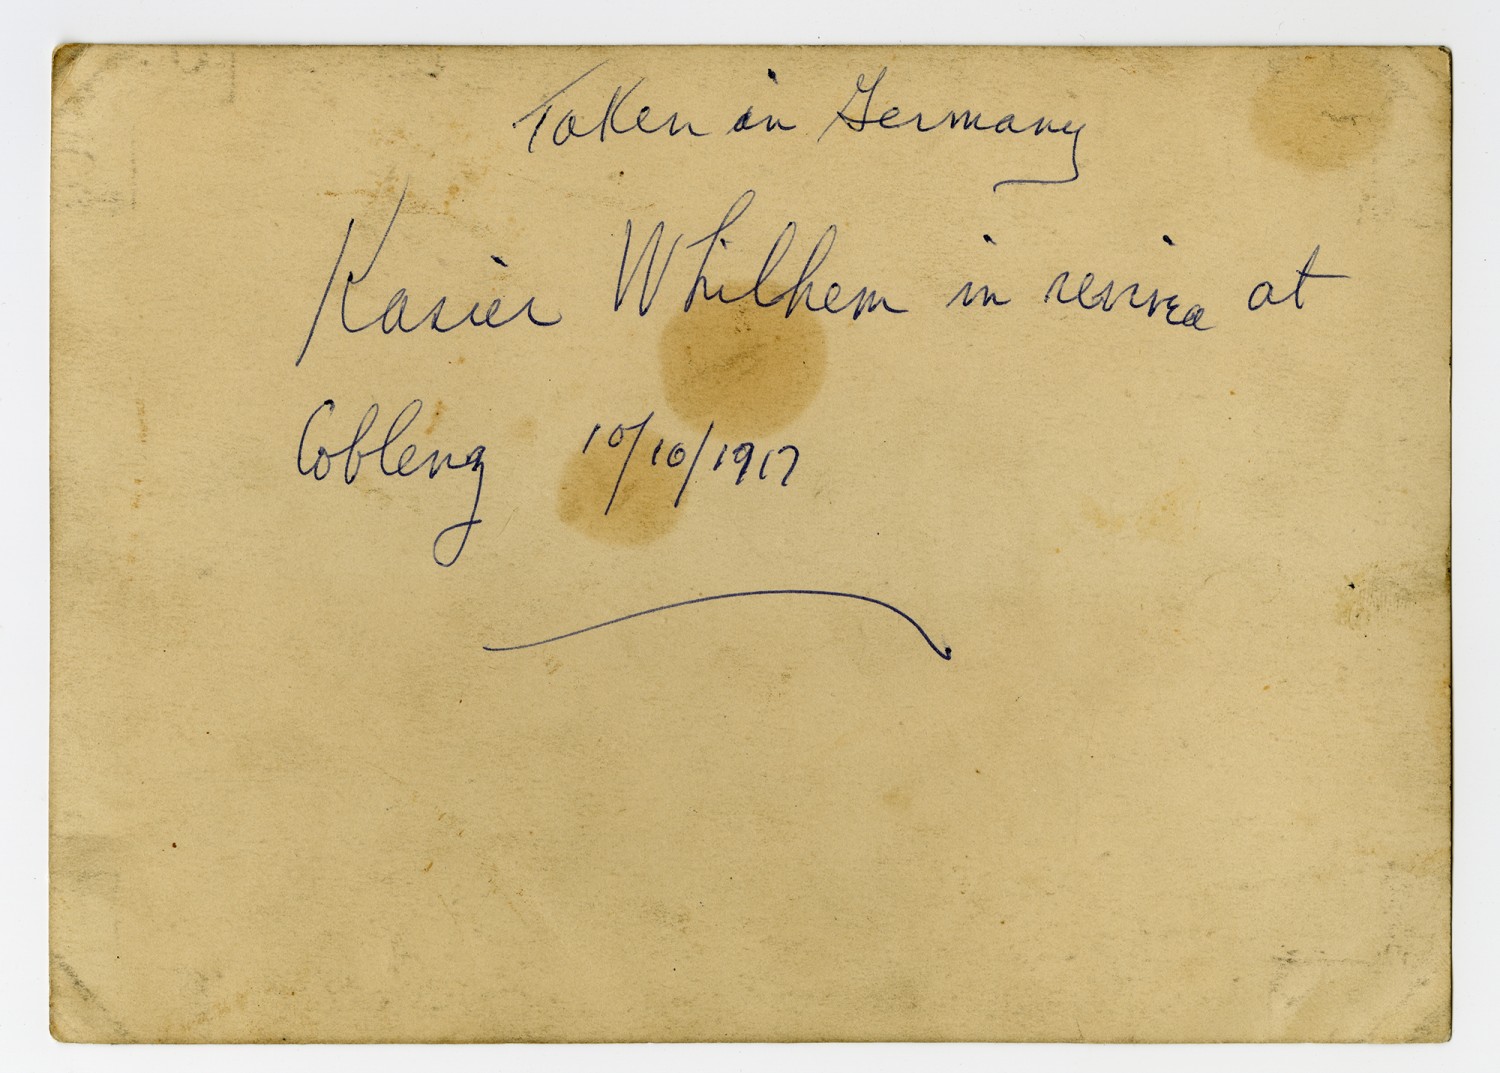 Taken in Germany
Kasier Whilhem in revivea at
Coblenz 10/10/1917